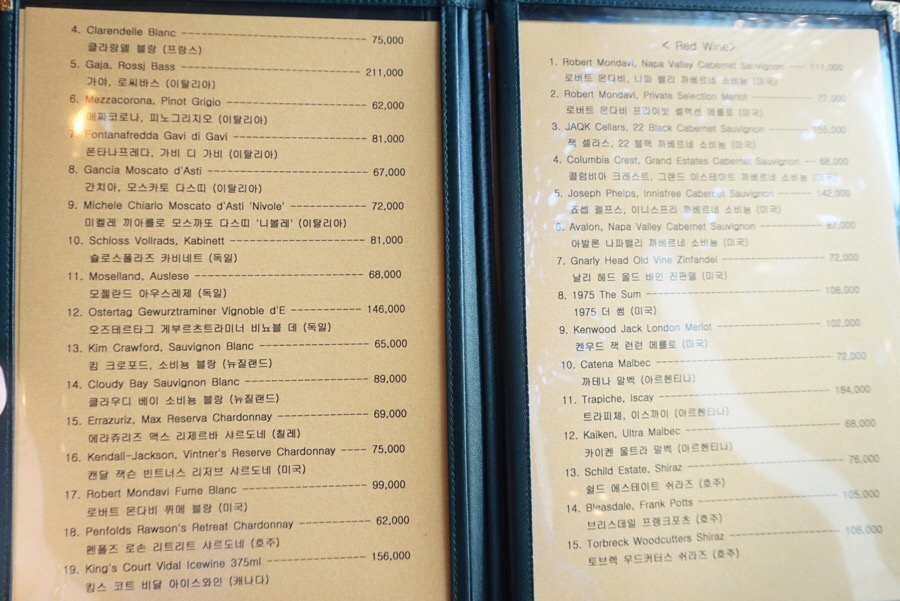 4. Clarendelle Blanc 75,000
클라랑델 블랑 (프랑스)
5. Gaja, Rossj Bass 211,000
가야, 로씨바스 (이탈리아)
6. Mezzacorona, Pinot Grigio 62,000
메짜코로나, 피노그리지오 (이탈리아)
7. Fontanafredda Gavi di Gavi 81,000
폰타나프레다, 가비 디 가비 (이탈리아)
8. Gancia Moscato d'Asti 67,000
간치아, 모스카토 다스띠 (이탈리아)
9. Michele Chiarlo Moscato d'Asti 'Nivole' 72,000
미켈레 끼아를로 모스까또 다스띠 '니볼레' (이탈리아)
10. Schloss Vollrads, Kabinett 81,000
슐로스폴라즈 카비네트 (독일)
11. Moselland, Auslese 68,000
모젤란드 아우스레제 (독일)
12. Ostertag Gewurztraminer Vignoble d'E 146,000
오즈테르타그 게부르츠트라미너 비뇨블 데 (독일)
13. Kim Crawford, Sauvignon Blanc 65,000
킴 크로포드, 소비뇽 블랑 (뉴질랜드)
14. Cloudy Bay Sauvignon Blanc 89,000
클라우디 베이 소비뇽 블랑 (뉴질랜드)
15. Errazuriz, Max Reserva Chardonnay 69,000
에라쥬리즈 맥스 리제르바 샤르도네 (칠레)
16. Kendall-Jackson, Vintner's Reserve Chardonnay 75,000
캔달 잭슨 빈트너스 리저브 샤르도네 (미국)
17. Robert Mondavi Fume Blanc 99,000
로버트 몬다비 퓌메 블랑 (미국)
18. Penfolds Rawson's Retreat Chardonnay 62,000
펜폴즈 로손 리트리트 샤르도네 (호주)
19. King's Court Vidal Icewine 375ml 156,000
킹스 코트 비달 아이스와인 (캐나다)
< Red Wine>
1. Robert Mondavi, Napa Valley Cabernet Sauvignon 111,000
로버트 몬다비, 나파 밸리 까베르네 소비뇽 (미국)
2. Robert Mondavi, Private Selection Merlot 72,000
로버트 몬다비 프라이빗 셀렉션 메를로 (미국)
3. JAQK Cellars, 22 Black Cabernet Sauvignon 155,000
잭 셀라스, 22 블랙 까베르네 소비뇽 (미국)
4. Columbia Crest, Grand Estates Cabernet Sauvignon 68,000
콜럼비아 크레스트, 그랜드 이스테이트 까베르네 소비뇽
5. Joseph Phelps, Innisfree Cabernet Sauvignon 142,000
죠셉 펠프스, 이니스프리 까베르네 소비뇽 (미국)
6. Avalon, Napa Valley Cabernet Sauvignon 87,000
아발론 나파밸리 까베르네 소비뇽 (미국)
7. Gnarly Head Old Vine Zinfandel 72,000
날리 헤드 올드 바인 진판델 (미국)
8. 1975 The Sum 108,000
1975 더 썸 (미국)
9. Kenwood Jack London Merlot 102,000
켄우드 잭 런런 메를로 (미국)
10. Catena Malbec 72,000
까테나 말벡 (아르헨티나)
11. Trapiche, Iscay 184,000
트라피체, 이스까이 (아르헨티나)
12. Kaiken, Ultra Malbec 68,000
카이켄 울트라 말벡 (아르헨티나)
13. Schild Estate, Shiraz 76,000
쉴드 에스테이트 쉬라즈 (호주)
14. Bleasdale, Frank Potts 105,000
브리스데일 프랭크포츠 (호주)
15. Torbreck Woodcutters Shiraz 108,000
토브렉 우드커터스 쉬라즈 (호주)